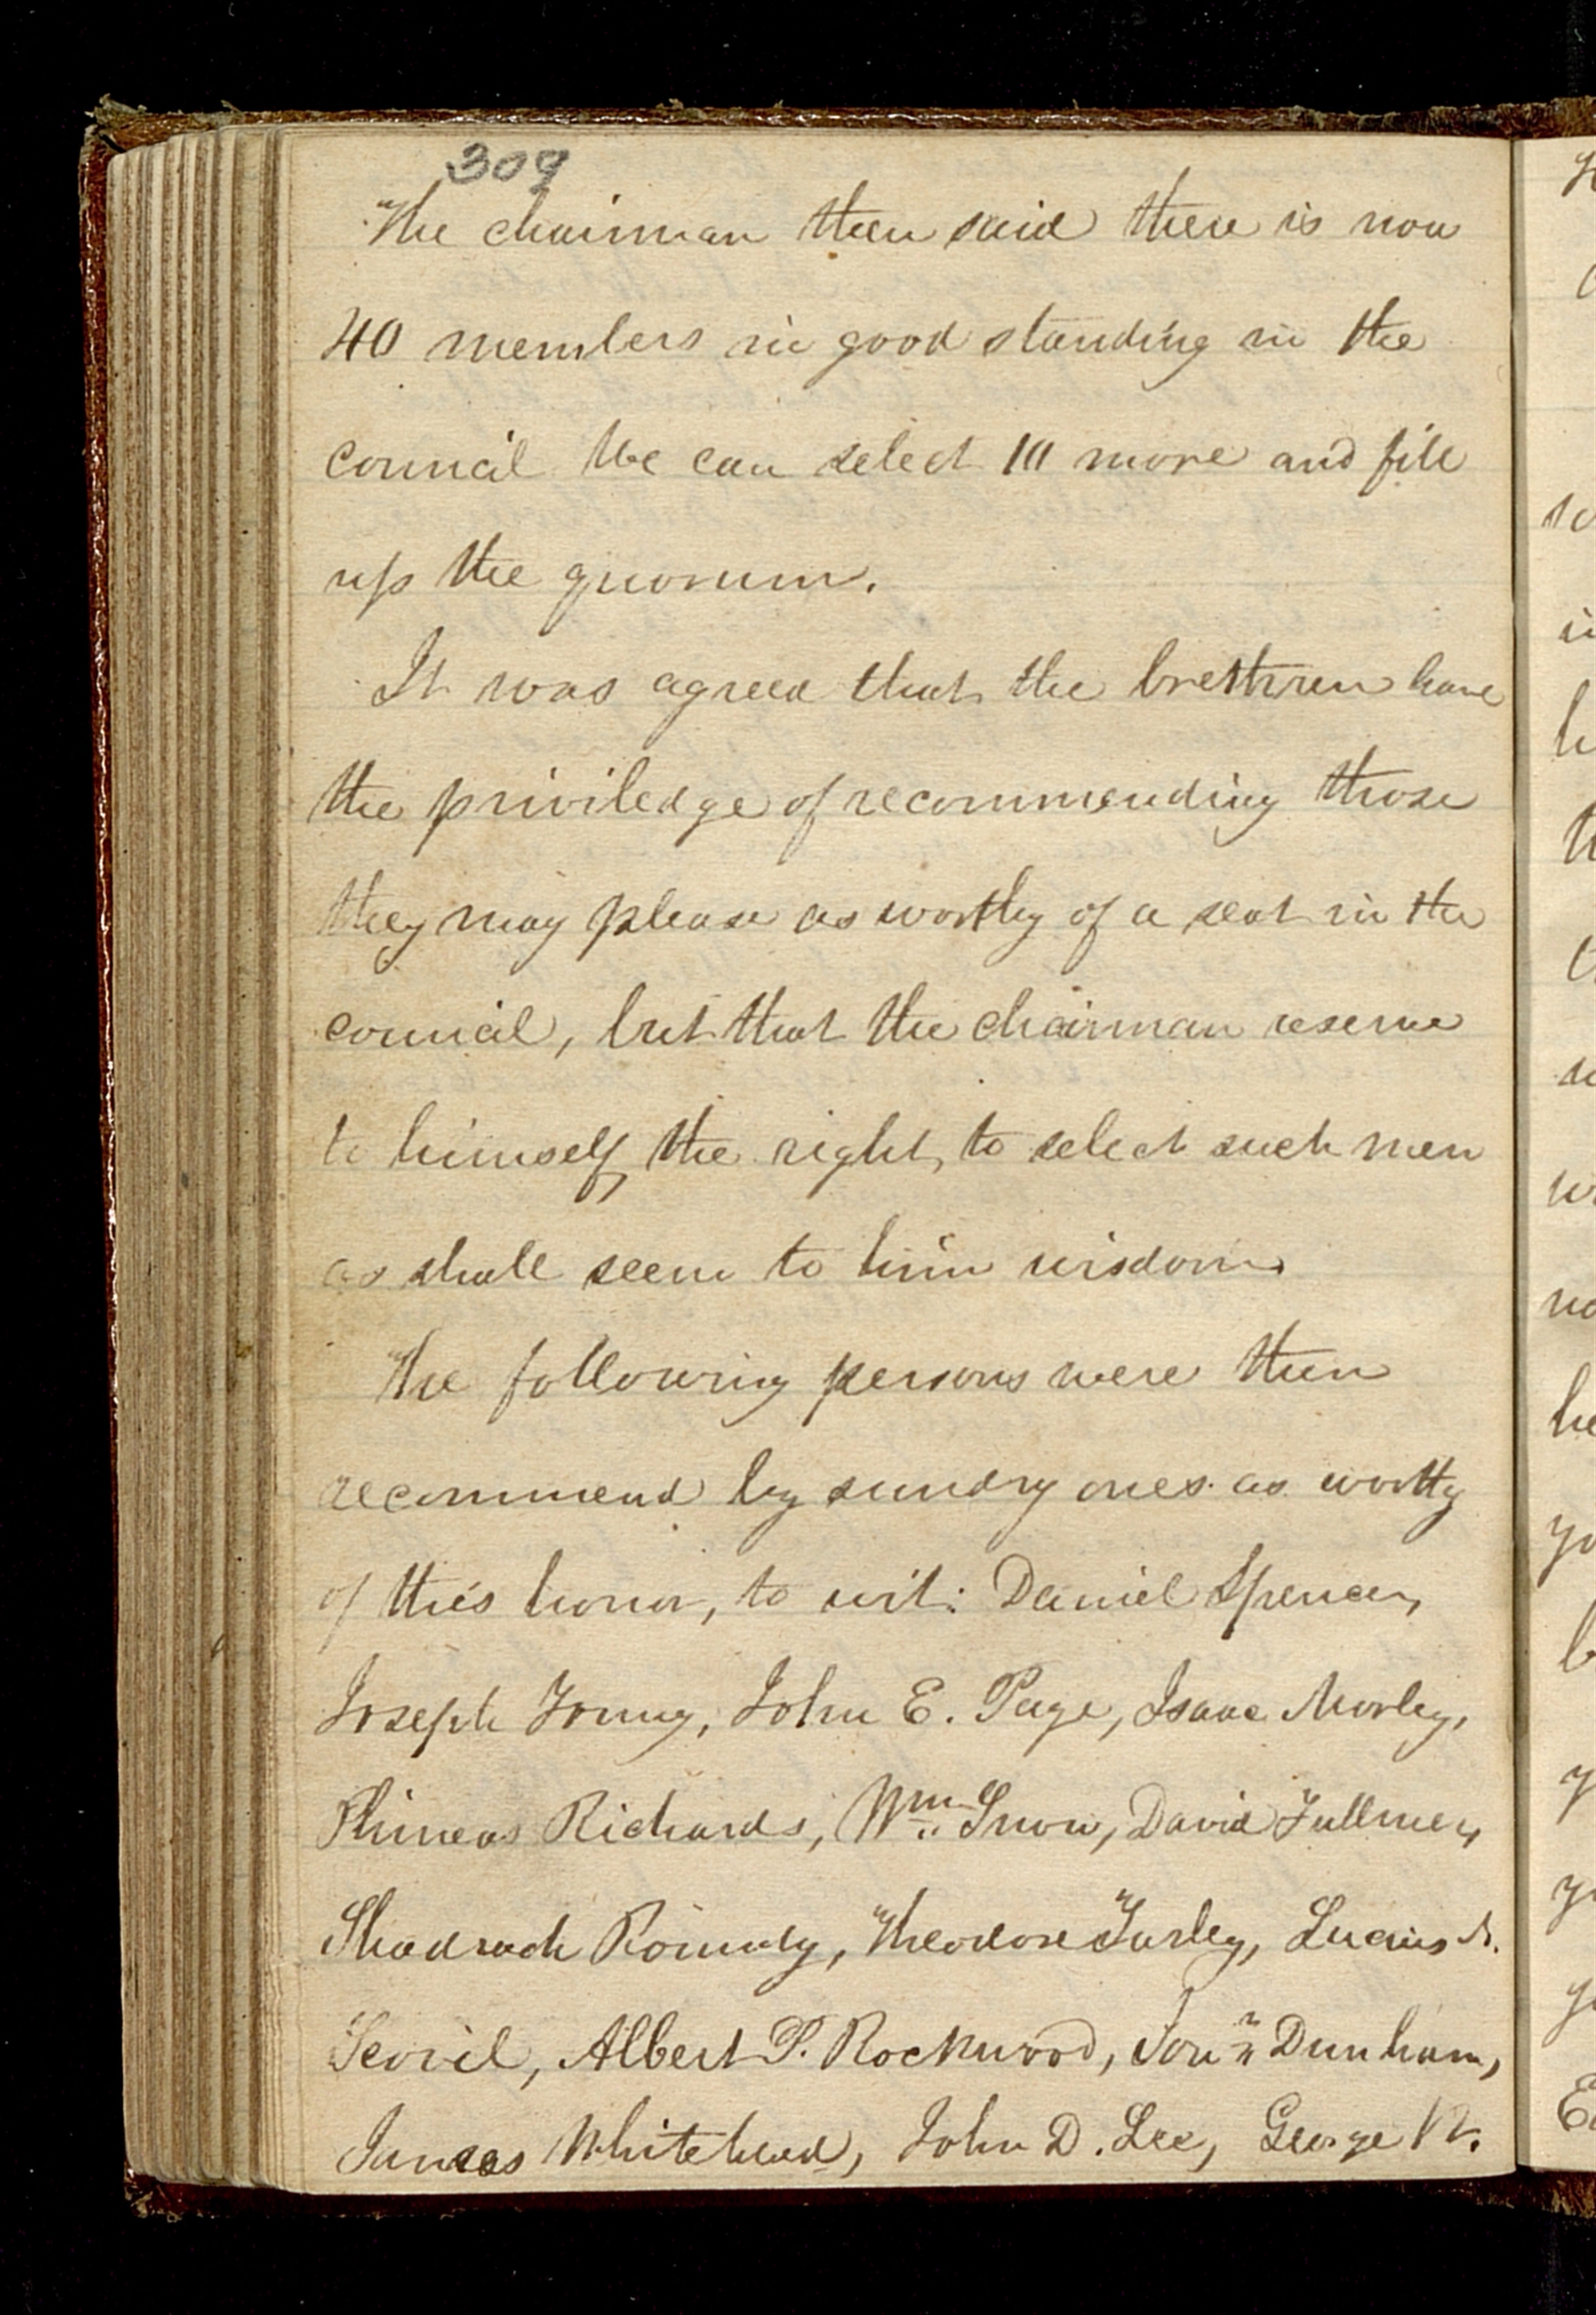 309
The chairman then said there is now
40 members in good standing in the
council We can select 10 more and fill
up the quorum.
It was agreed that the brethren have
the priviledge of recommending those
they may please as worthy of a seat in the
council, but that the chairman reserve
to himself the right, to select such men
as shall seem to him wisdom.
The following persons were then
recommend by sundry ones as worthy
of this honor, to wit: Daniel Spencer,
Joseph Young, John E. Page, Isaac Morley,
Phineas Richards, Wm. Snow, David Fullmer,
Shadrach Roundy, Theodore Turley, Lucius N.
Scovil, Albert P. Rockwood, Jonn. Dunham,
James Whitehead, John D. Lee, George W.